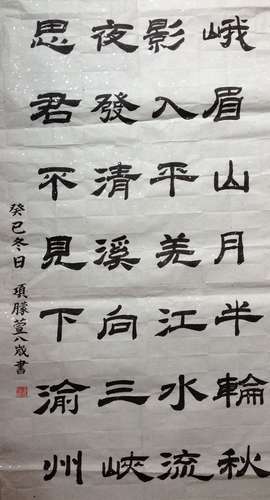 峨眉山月半輪秋
影入平羌江水流
夜發清溪向三峽
思君不見下渝州
癸巳冬日 項朦萱八歲書